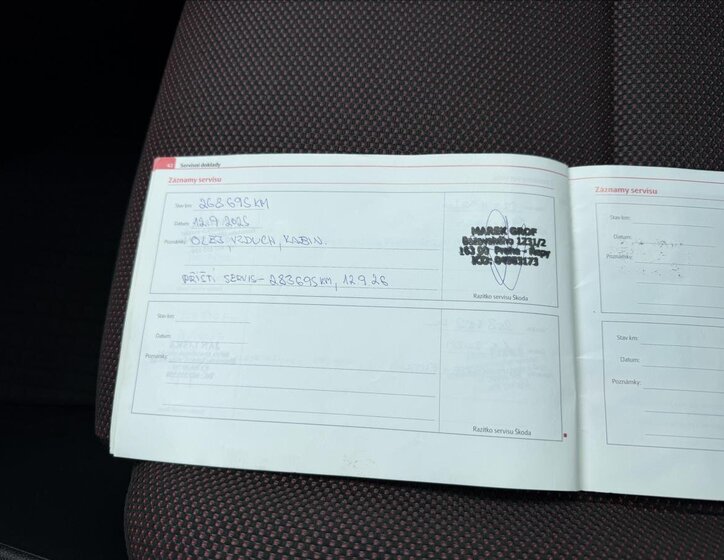 42 Servisní doklady
Záznamy servisu
Stav km: 268695KM
Datum: 12.9.2025
Poznámky: OLEJ, VZDUCH, KABIN.
PŘÍŠTÍ SERVIS - 283695KM, 12.9.26
MAREK GROF
1231/2
163 00 Praha - Řepy
IČO:
Razítko servisu Škoda
Stav km:
Datum:
Poznámky:
Razítko servisu Škoda
Záznamy servisu
Stav km:
Datum:
Poznámky:
Stav km:
Datum:
Poznámky: